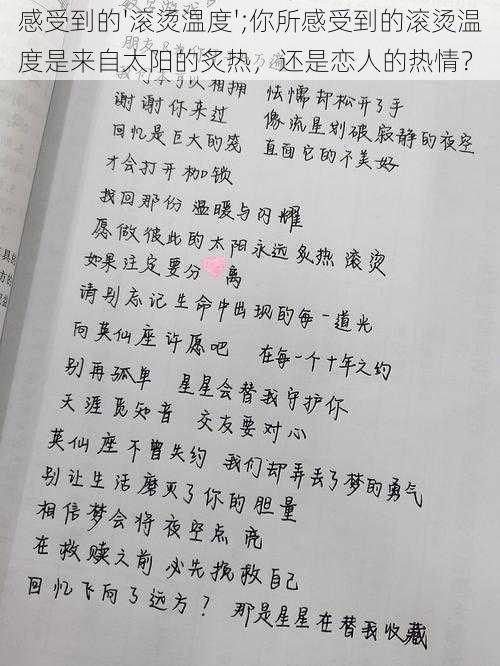 感受到的'滚烫温度';你所感受到的滚烫温
度是来自太阳的炙热，还是恋人的热情？
我们本可以相拥 怯懦却松开了手
谢谢你来过 像流星划破寂静的夜空
回忆是巨大的笼 直面它的不美好
才会打开枷锁
找回那份温暖与闪耀
愿做彼此的太阳永远炙热滚烫
如果注定要分离
请别忘记生命中出现的每一道光
向英仙座许愿吧 在每一个十年之约
别再孤单 星星会替我守护你
天涯觅知音 交友要对心
英仙座不曾失约 我们却弄丢了梦的勇气
别让生活磨灭了你的胆量
相信梦会将夜空点亮
在救赎之前必先挽救自己
回忆飞向了远方？那是星星在替我收藏